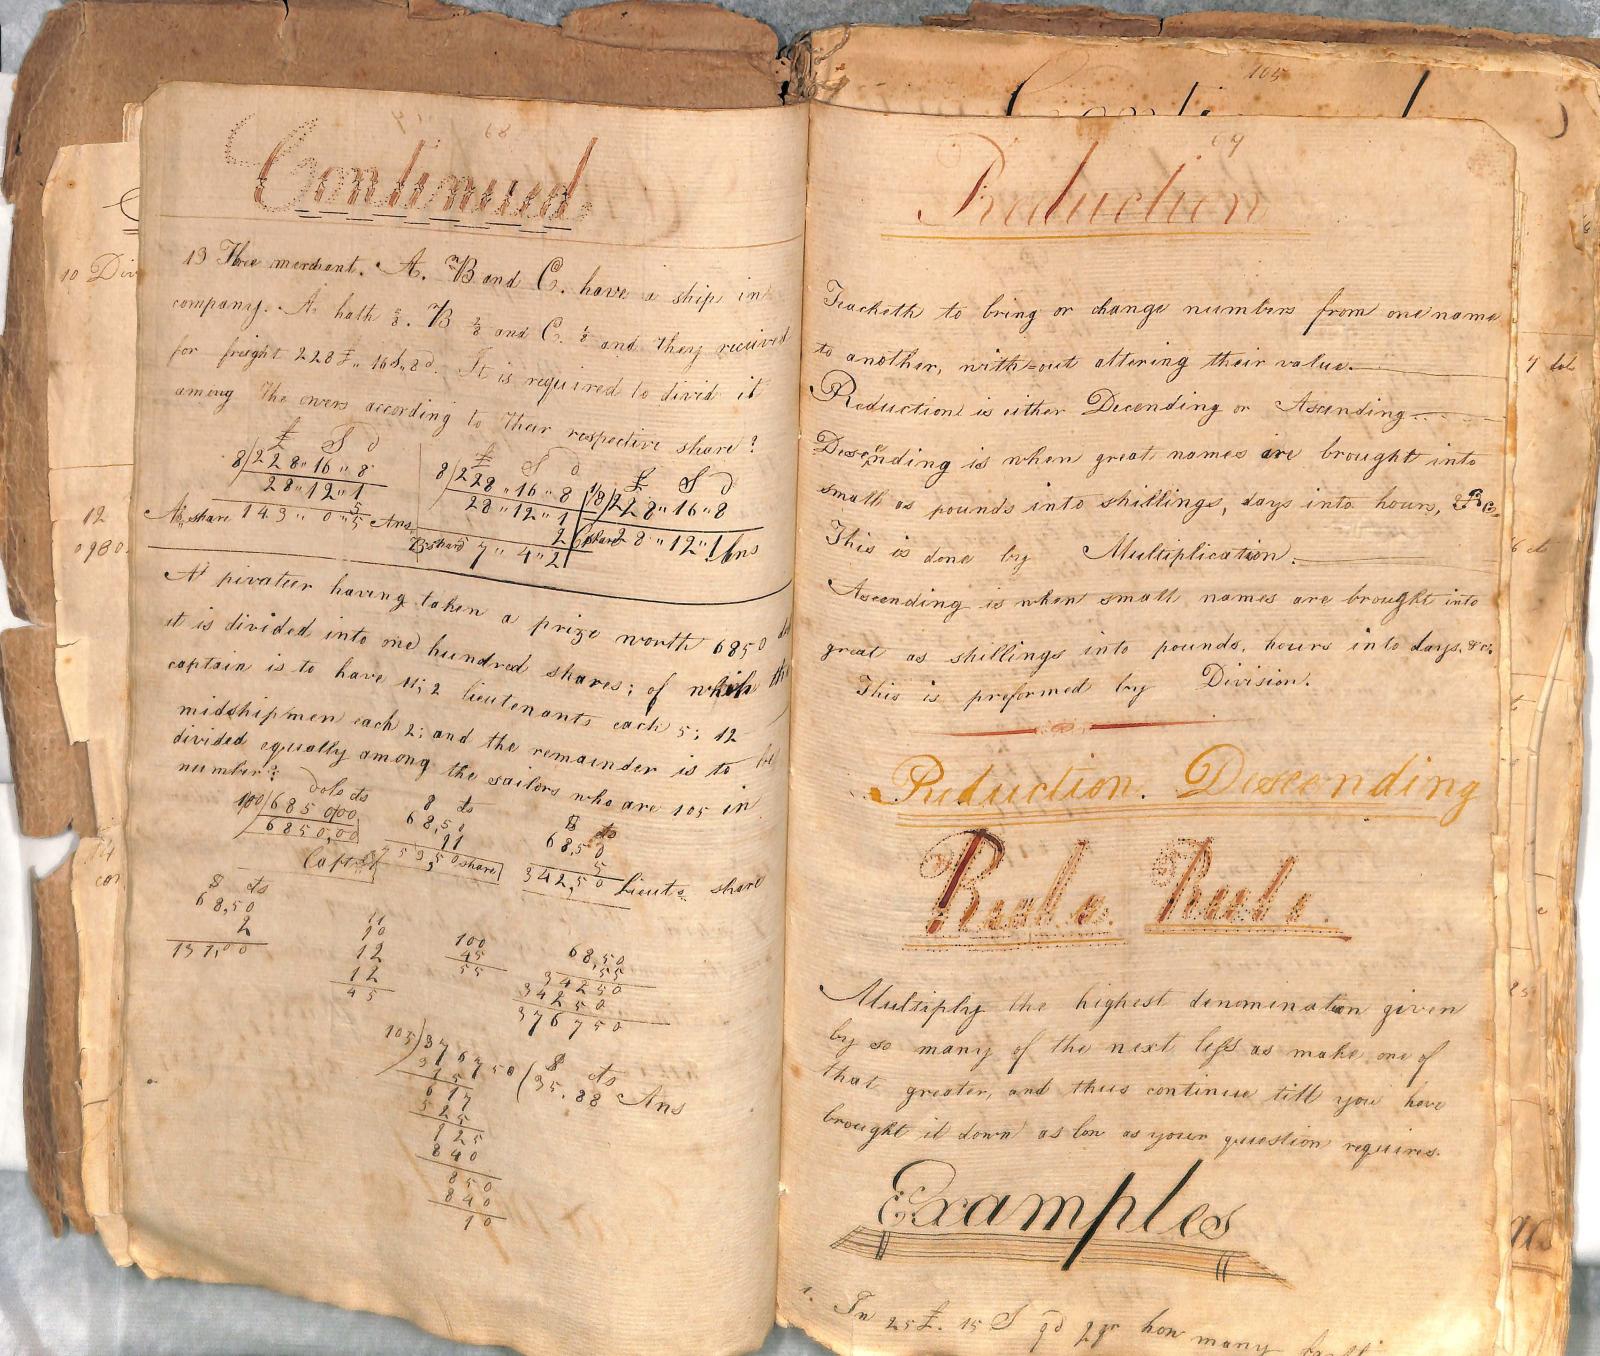 68
Continued
13 Three merchant. A. B and C. have a ship in
company. A hath 5/8. B 2/8 and C. 1/8 and they received
for freight 228£,, 16S,, 8d. It is required to divid it
among the owers according to their respective share?
£ S d
8/228,,16,,8
28,,12,,1
5
As share 143,,0,,5 Ans
£ S d
8/228,,16,,8
28,,12,,1
2
Bs share 57,,4,,2
£ S d
1/8/228,,16,,8
C share 28,,12,,1 Ans
A pivateer having taken a prize worth 6850
it is divided into one hundred shares; of which the
captain is to have 11; 2 lieutenants each 5; 12
midshipmen each 2; and the remainder is to be
divided equally among the sailors who are 105 in
number?
dols cts
100/685000
6850,00
$ cts
68,50
11
Capt 753,50 share
$ cts
68,50
5
342,50 Lieuts share
$ cts
68,50
2
137,00
11
10
12
12
45
100
45
55
68,50
55
34250
34250
376750
105)376750($ cts
35.88 Ans
315
617
525
925
840
850
840
10
69
Reduction
Teacheth to bring or change numbers from one name
to another, with=out altering their value.
Reduction is either Decending or Ascending
Descending is when great names are brought into
small as pounds into shillings, days into hours, &c
This is done by Multiplication.
Ascending is when small names are brought into
great as shillings into pounds, hours into days, &c.
This is preformed by Division.
Reduction. Descending
Rule. Rule.
Multiply the highest denomenation given
by so many of the next less as make one of
that greater, and thus continue till you have
brought it down as lon as your question requires.
Examples
1. In 25£. 15S 9d 2qr how many
105
10 Div
12
0980